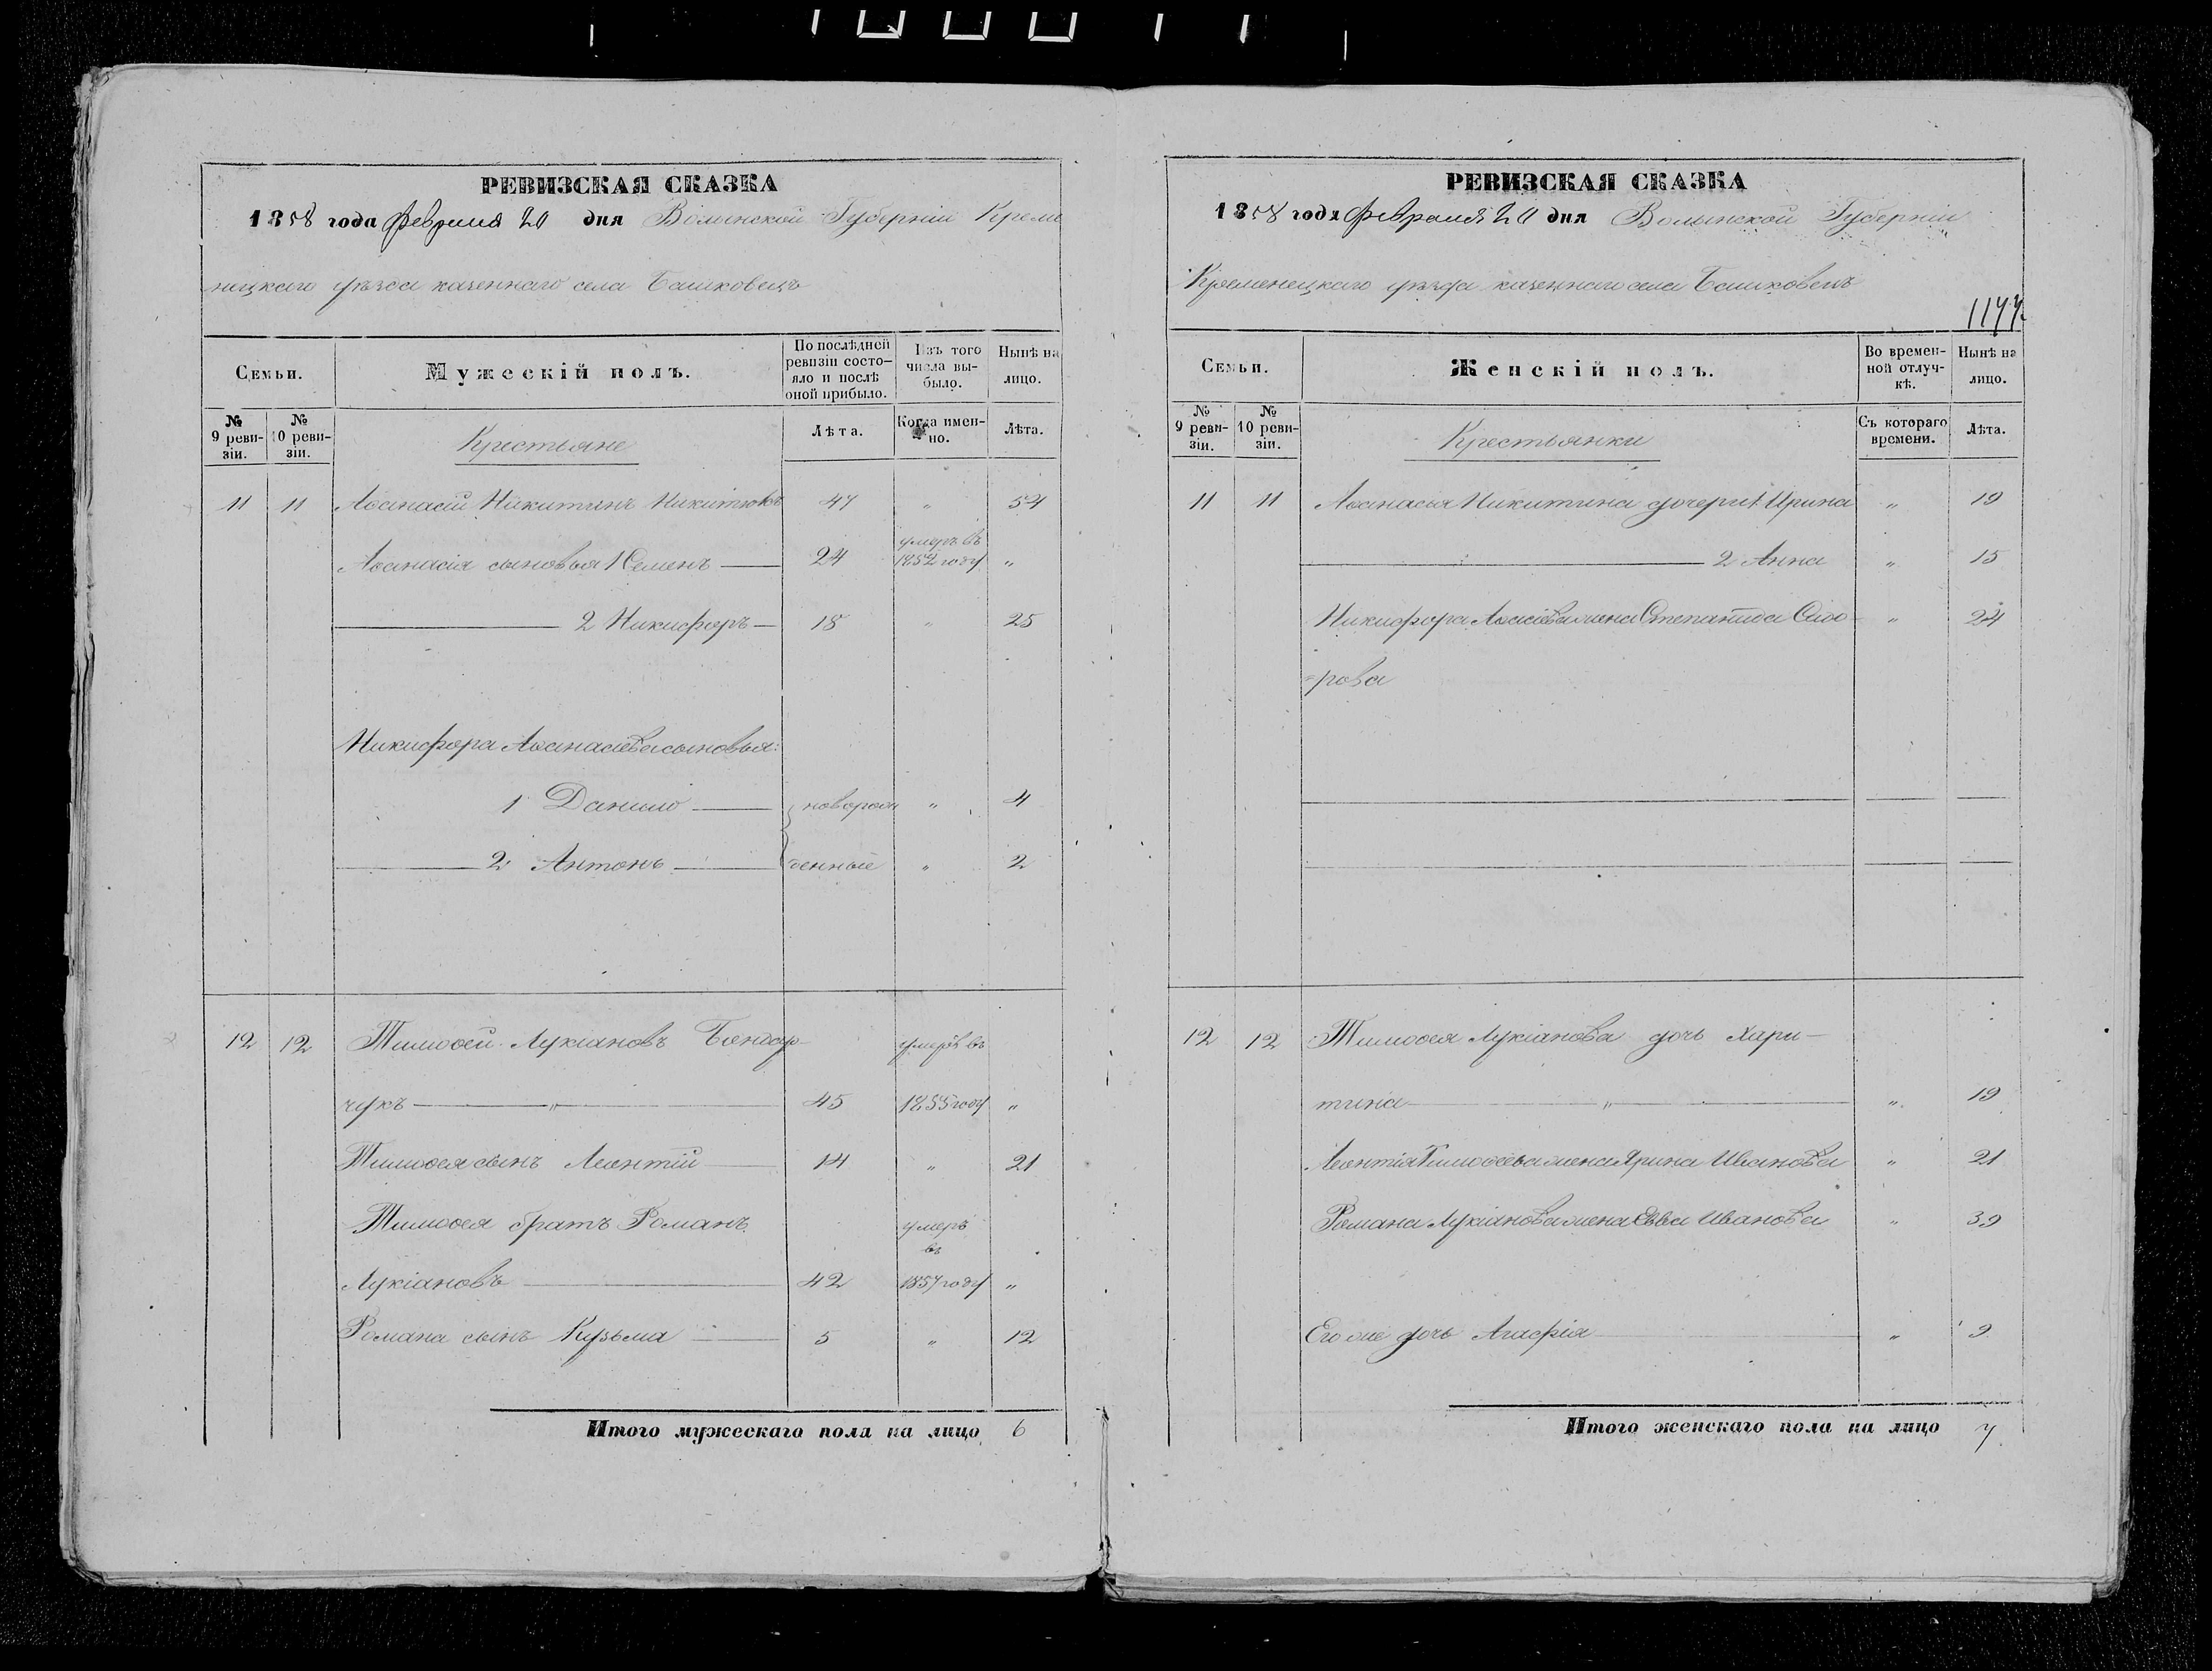 РЕВИЗСКАЯ СКАЗКА
1858 года февраля 20 дня Волынской Губерніи Креме
нецкаго уѣзда казеннаго села Башковецъ
Семьи.
Мужескій полъ.
По послѣдней ревизіи состо-яло и послѣ оной прибыло.
Изъ того числа вы-было.
Нынѣ на лицо.
№ 9 реви-зіи.
№ 10 реви-зіи.
Крестьяне
Лѣта.
Когда имен-но.
Лѣта.
11 11 Аѳанасій Никитинъ Никитюкъ 47 " 54
умеръ въ
Аѳанасія сыновья 1 Семенъ 24 1852 году "
2 Никифоръ 18 " 25
Никифора Аѳанасіева сыновья:
1 Данило новорож " 4
2 Антонъ денные " 2
12 12 Тимоѳей Лукіановъ Бондар- умеръ въ
чукъ " 45 1855 году "
Тимоѳея сынъ Леонтій 14 " 21
Тимоѳея братъ Романъ умеръ
въ
Лукіановъ 42 1857 году "
Романа сынъ Кузьма 5 " 12
Итого мужескаго пола на лицо 6
РЕВИЗСКАЯ СКАЗКА
1858 года февраля 20 дня Волынской Губерніи
Кременецкаго уѣзда казеннаго села Башковецъ
1177.
Семьи.
Женскій полъ.
Во времен-ной отлуч-кѣ.
Нынѣ на лицо.
№ 9 реви-зіи.
№ 10 реви-зіи.
Крестьянки
Съ котораго времени.
Лѣта.
11 11 Аѳанасья Никитина дочери 1 Ирина " 19
2 Анна " 15
Никифора Аѳанасіева жена Степанида Сидо " 24
рова
12 12 Тимоѳея Лукіанова дочь Хари-
тина " " 19
Леонтія Тимоѳеева жена Ярина Иванова " 21
Романа Лукіанова жена Ева Иванова " 39
Его же дочь Агафія " 9
Итого женскаго пола на лицо 7